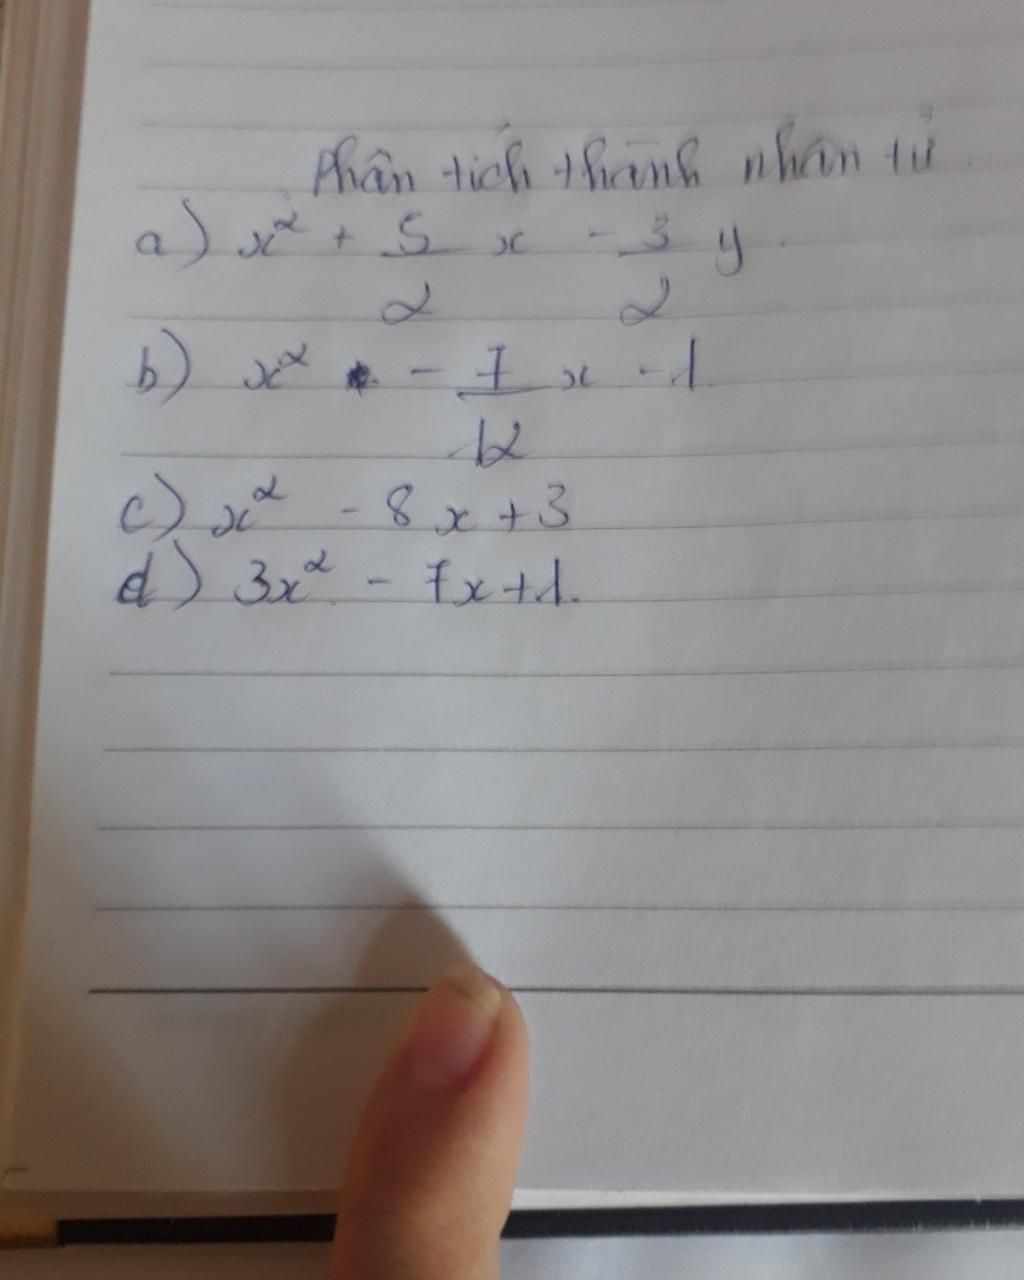 Phân tích thành nhân tử
a) x² + 5/2 x - 3/2 y.
b) x² - 7/12 x - 1
c) x² - 8x + 3
d) 3x² - 7x + 1.